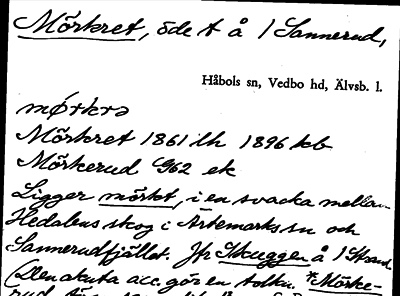 Mörkret, öde t å 1 Sannerud,
Håbols sn, Vedbo hd, Älvsb. l.
mørkrə
Mörkret 1861 ilh 1896 kb
Mörkerud G62 ek
Ligger mörkt, i en svacka mellan
Hedalens skog i Ärtemarks sn och
Sannerudfjället. Jfr Skuggen å 1 Strand
(Den akuta acc. gör en tolkn. *Mörke-